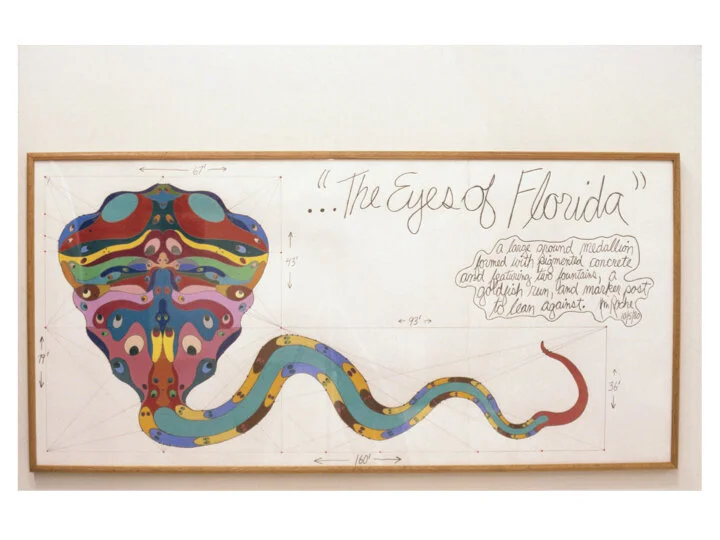 67'
"...The Eyes of Florida"
a large ground medallion
formed with pigmented concrete
and featuring two fountains, a
goldfish run, and marker post
to lean against.
45'
93'
79'
36'
160'